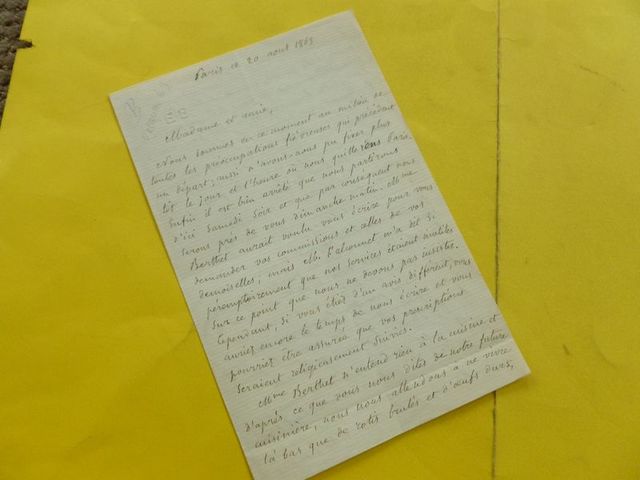 Paris ce 20 aout 1863
Madame et amie,
Nous sommes en ce moment au milieu de
toutes les préoccupations fiévreuses qui précèdent
un départ; aussi n'avons-nous pu fixer plus
tôt le jour et l'heure où nous quitterions Paris.
Enfin il est bien arrêté que nous partirons
d'ici Samedi soir et que par conséquent nous
serons près de vous dimanche matin. Mme
Berthet aurait voulu vous écrire pour vous
demander vos commissions et celles de vos
demoiselles, mais Mr. m'a dit si
péremptoirement que nos services étaient inutiles
sur ce point que nous ne devons pas insister.
Cependant, si vous étiez d'un avis différent, vous
auriez encore le temps de nous écrire et vous
pourriez être assurée que vos prescriptions
seraient religieusement suivies.
Mme Berthet n'entend rien à la cuisine et
d'après ce que vous nous dites de notre future
cuisinière, nous nous attendons à ne vivre
là bas que de rotis brulés et d'œufs durs,